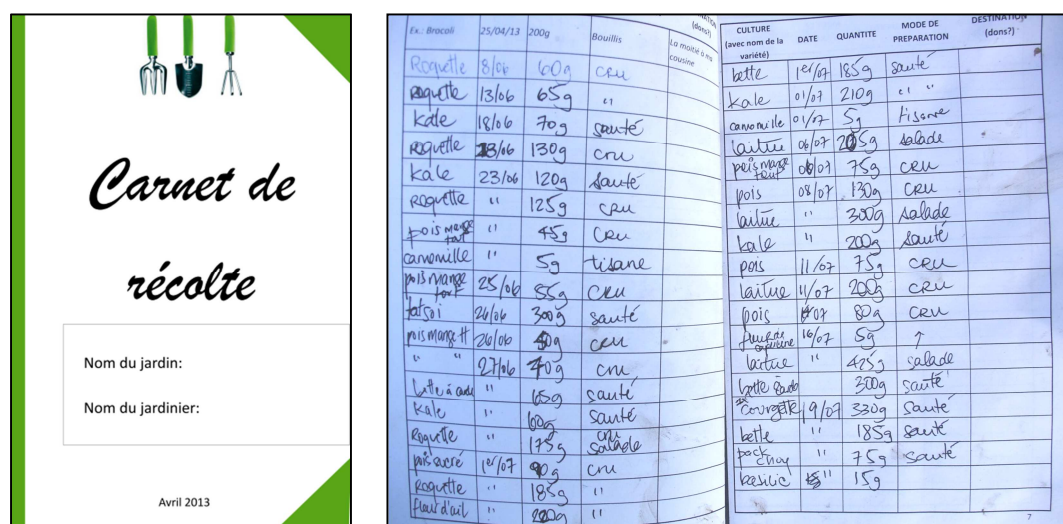 Carnet de
récolte
Nom du jardin:
Nom du jardinier:
Avril 2013
(dons?)
Ex.: Brocoli 25/04/13 200g Bouillis La moitié à ma
cousine
Roquette 8/06 60g cru
Roquette 13/06 65g "
Kale 18/06 70g sauté
roquette 23/06 130g cru
Kale 23/06 120g sauté
Roquette " 125g cru
pois mange
tout " 45g cru
camomille " 5g tisane
pois mange
tout 25/06 55g cru
tatsoi 26/06 300g sauté
pois mange tt 26/06 cru
" " 27/06 70g cru
bette à carde " 165g sauté
Kale " 160g sauté
Roquette " 175g cru
salade
pois sucré 1er/07 90g cru
Roquette " 185g "
fleur d'ail " 220g "
CULTURE
(avec nom de la
variété) DATE QUANTITE MODE DE
PREPARATION DESTINATION
(dons?)
bette 1er/07 185g sauté
Kale 01/07 210g " "
camomille 01/07 5g tisane
laitue 06/07 205g salade
pois mange
tout 06/07 75g cru
pois 08/07 130g cru
laitue " 300g salade
Kale " 200g sauté
pois 11/07 75g cru
laitue 11/07 200g cru
pois 07 80g cru
fleur de
capucine 16/07 5g ↑
laitue " 425g salade
bette 300g sauté
courgette 19/07 330g sauté
bette " 185g sauté
pock
choy " 75g sauté
basilic " 15g
7